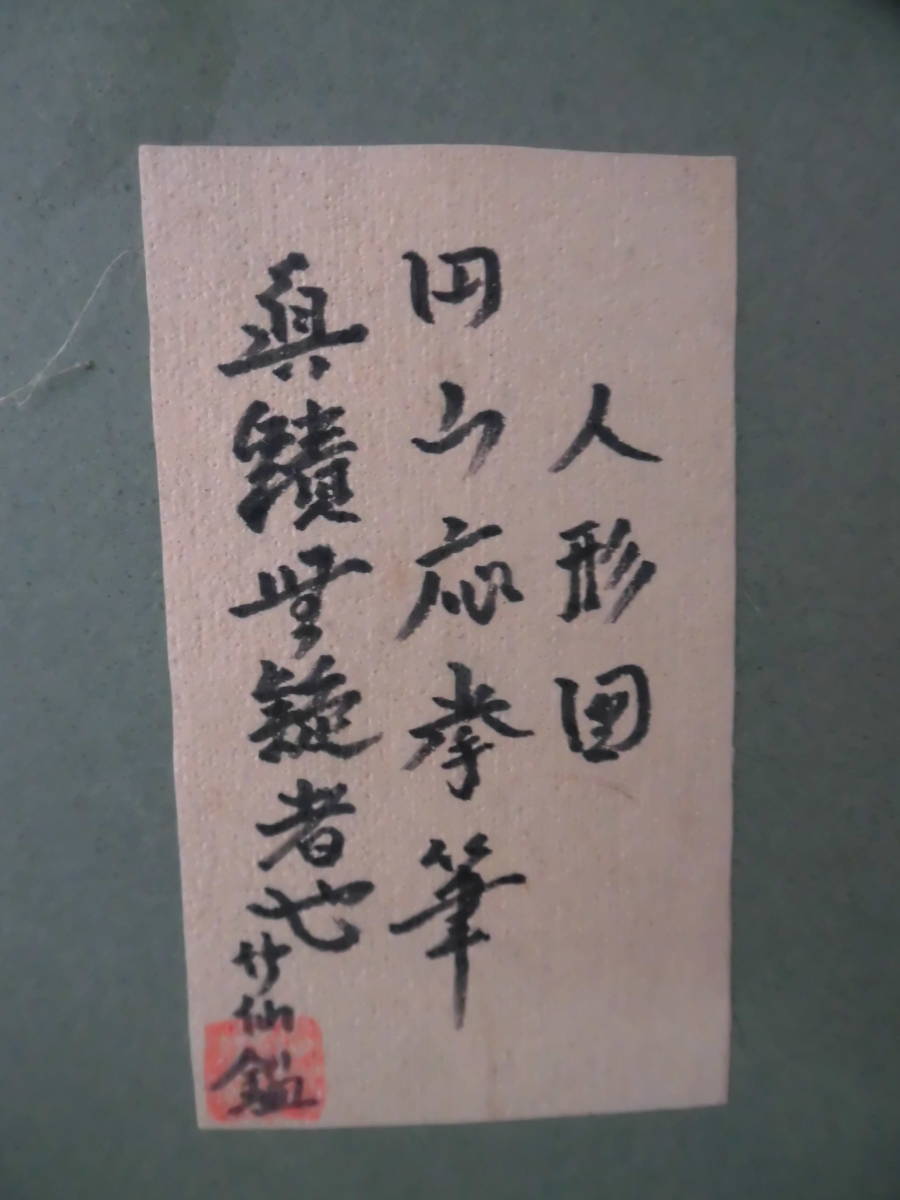 人形図
円山応挙筆
真蹟無疑者也 竹仙鑑